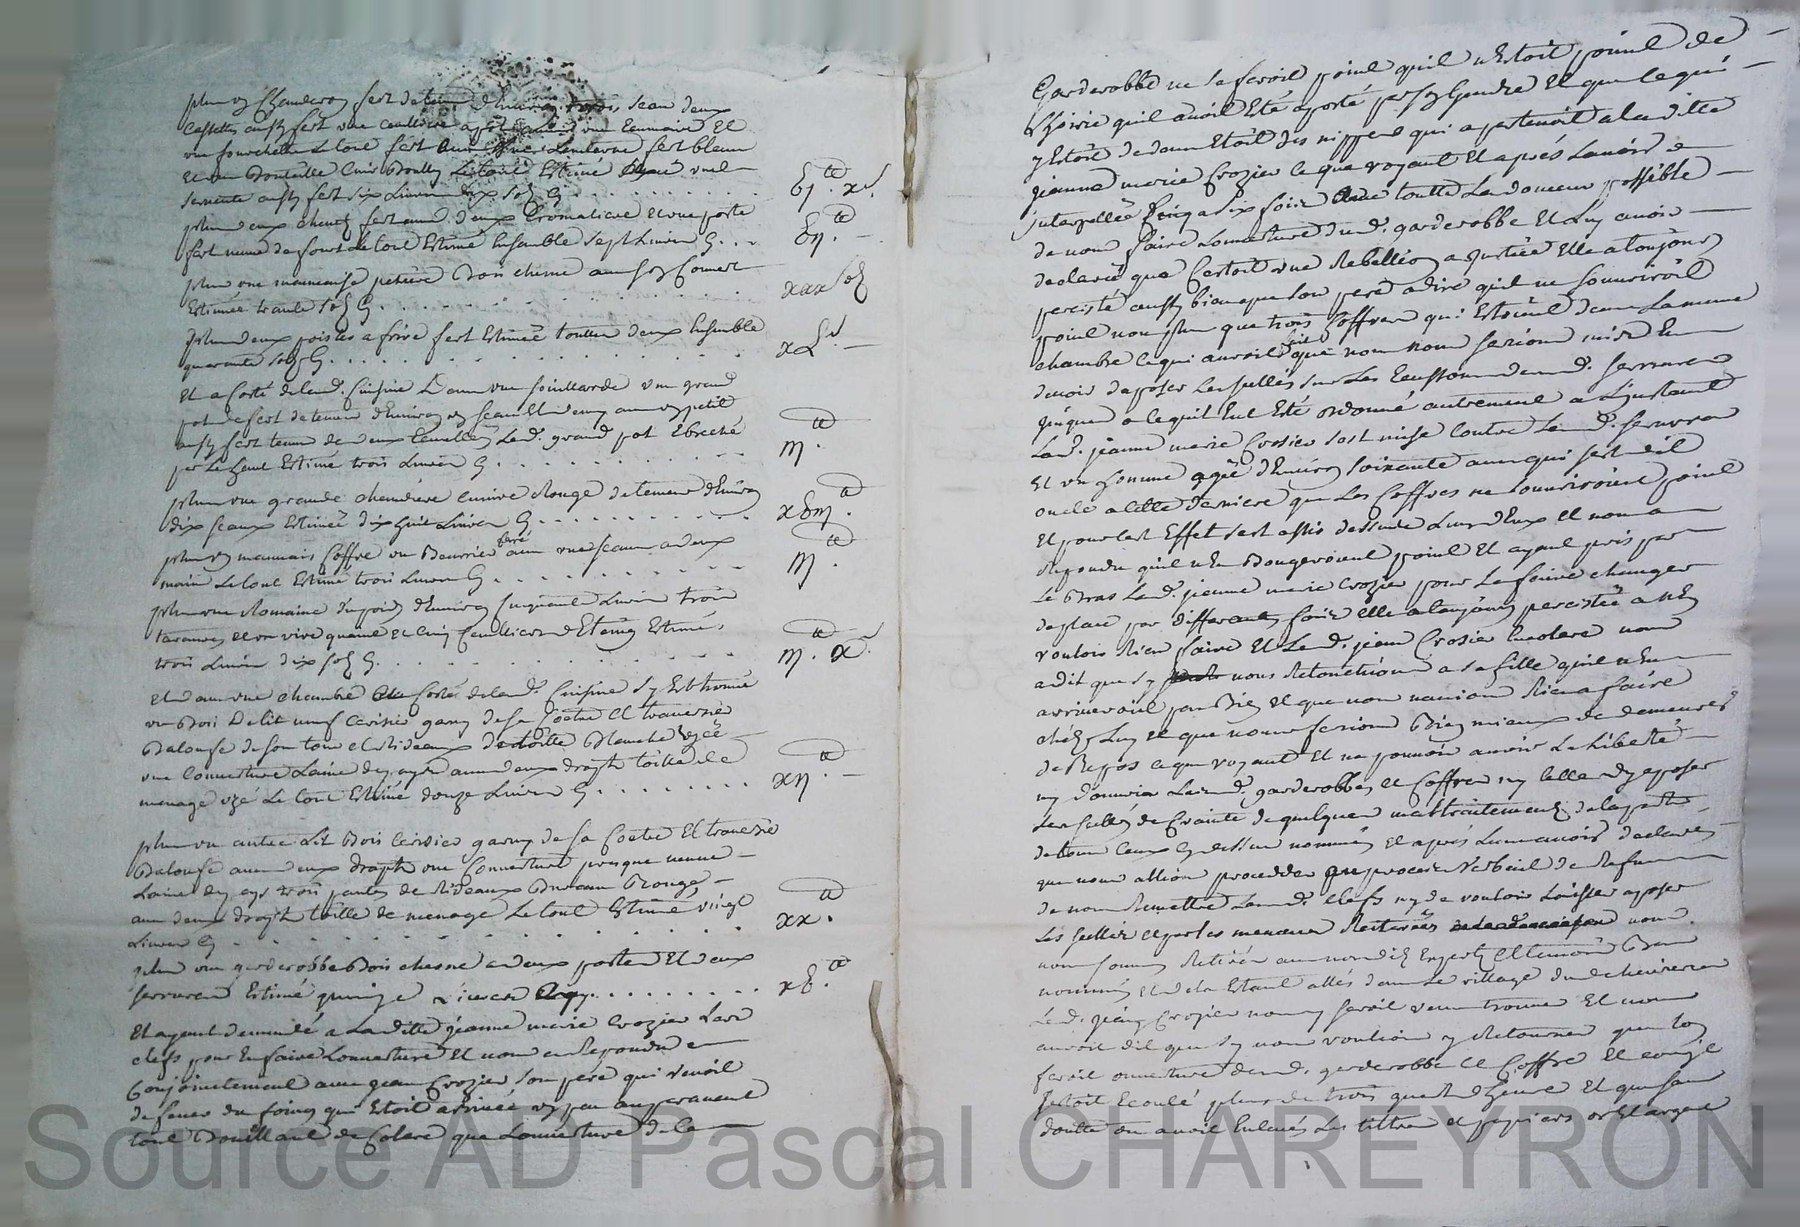 plus un chauderon fert de teneur d'environ trois seau deux
cassettes aussy fert une ceulliere a pot une Ecumoire Et
une fourchette Le tout fert une lenterne fert blanc
Et une Bouteille Estimé
servente aussy fert six Livres dix sols Cy vj.tt x s.
plus deux chenets fert une cromaliere et une porte
fert neuve de fourt Le tout Estimé Ensemble sept Livres Cy vij.tt
plus une mauvaise petriere Bois chesne avec son couvert
Estimée trante sols Cy xxx sols
plus deux poisles a frire fert Estimée touttes deux Ensemble
quarante sols Cy xL s.
Et a costé de lad. cuisine dans une souillarde un grand
pot de fert de teneur d'environ un seau Et demy avec un petit
aussy fert tenun de deux Ecuelles Led. grand pot Ebreché
par Le haut Estimé trois Livres Cy iij.tt
plus une grande chaudiere cuivre Rouge de teneur d'Environ
dix seaux Estimée dix huit Livres Cy xviij.tt
plus un mauvais coffre un Beurrier ferré avec une seaux a deux
main Le tout Estimé trois Livres Cy iij.tt
plus une Romaine du poids d'Environ cinquante Livres trois
taravires et un vire quant et cinq ceullieres d'Etaing Estimé
trois Livres dix sols Cy iij.tt x s.
et dans une chambre au costé de lad. cuisine s'y Est trouvé
un Bois de lit neuf cerisier garny de sa coetre et traversier
Balousse de son tour et Rideaux de toille Blanche uzée
une couverture Laine de pays avec deux draph toille de
menage uzé Le tout Estimé douze Livres Cy xij.tt
plus un autre Lit Bois cerisier garny de sa coetre Et traversier
Balousse avec deux draph une couverture presque neuve
Laine de pays trois pantes de Rideaux Rouge
avec deux draph toille de menage Le tout Estimé vingt
Livres Cy xx.tt
plus une garderobbe Bois chesne a deux portes Et deux
serrures Estimé quinze Livres Cy xv.tt
Et ayant demandé a Laditte jeanne marie Crozier Les
clefs pour En faire Louverture Et nous a Repondu
Conjointement avec jean Crozier son pere qui venoit
de fener du foing qui Etoit arrivée un peu auparavant
tout Bouillant de Colere que Louverture de la
Garderobbe ne se feroit point quil n'Estoit point de
hoirie quil avoit Eté aporté par son Gendre Et que ce qui
y Estoit dedans Etoit des nippes qui apartenoit a laditte
jeanne marie Crozier ce que voyant Et aprés Lavoir
interpellée cinq a six fois avec toutte La douceur possible
de nous faire Louverture dud. garderobbe Et Luy avoir
declaré que C'estoit une Rebellion a justice Elle a toujours
percisté aussy bien que son pere a dire quil ne souvriroit
point non plus que trois Coffres qui Estoient dans La meme
chambre ce qui auroit fait que nous nous serions mis En
devoir daposer Les scellés sur Les Ecussons desd. serrures
jusques a ce quil Eut Eté ordonné autrement a L'instant
Lad. jeanne marie Crozier s'est mise Contre Lesd. serrures
Et un homme agée d'Environ soixante ans qui s'est dit
oncle a cette derniere que Les Coffres ne souvriroient point
Et pour cet Effet s'est assis dessus Luy d'Eux Et nous a
Repondu quil n'En Bougeroient point Et ayant pris par
Le Bras Lad. jeanne marie Crozier pour La faire changer
de place par differantes fois Elle a toujours percistée a n'En
vouloir Rien faire Et Led. jean Crozier En colere nous
a dit que sy nous Retouchions a sa fille quil n'En
arriveroit pas Bien et que nous navions Rien a faire
chéz Luy et que nous serions Bien mieux de demeurer
de Repos ce que voyant Et ne pouvoir avoir La Liberté
ny douvrir Lesd. garderobbes et Coffres ny celle dy aposer
Les scellés de Crainte de quelques maltraitements de la part
de tous ceux Cy dessus nommés Et aprés Leur avoir declaré
que nous allions proceder au procés Verbail de Refus
de nous Remettre Lesd. clefs ny de vouloir Laisser aposer
Les scellés et par les menaces Reiterées nous
nous sommes Retirée avec nosdits Experts Et temoins Bas
nommés Et dela Estant allés dans Le village
Led. jean Crozier nous y seroit venu trouver Et nous
auroit dit que sy nous voulions y Retourner quon
feroit ouverture desd. garderobbe et Coffre Et comme
sestoit Ecoulé plus de trois quart d'heure Et que sans
doutte on avoit Enlevés Les tittres et papiers or Et argent
Source AD Pascal CHAREYRON